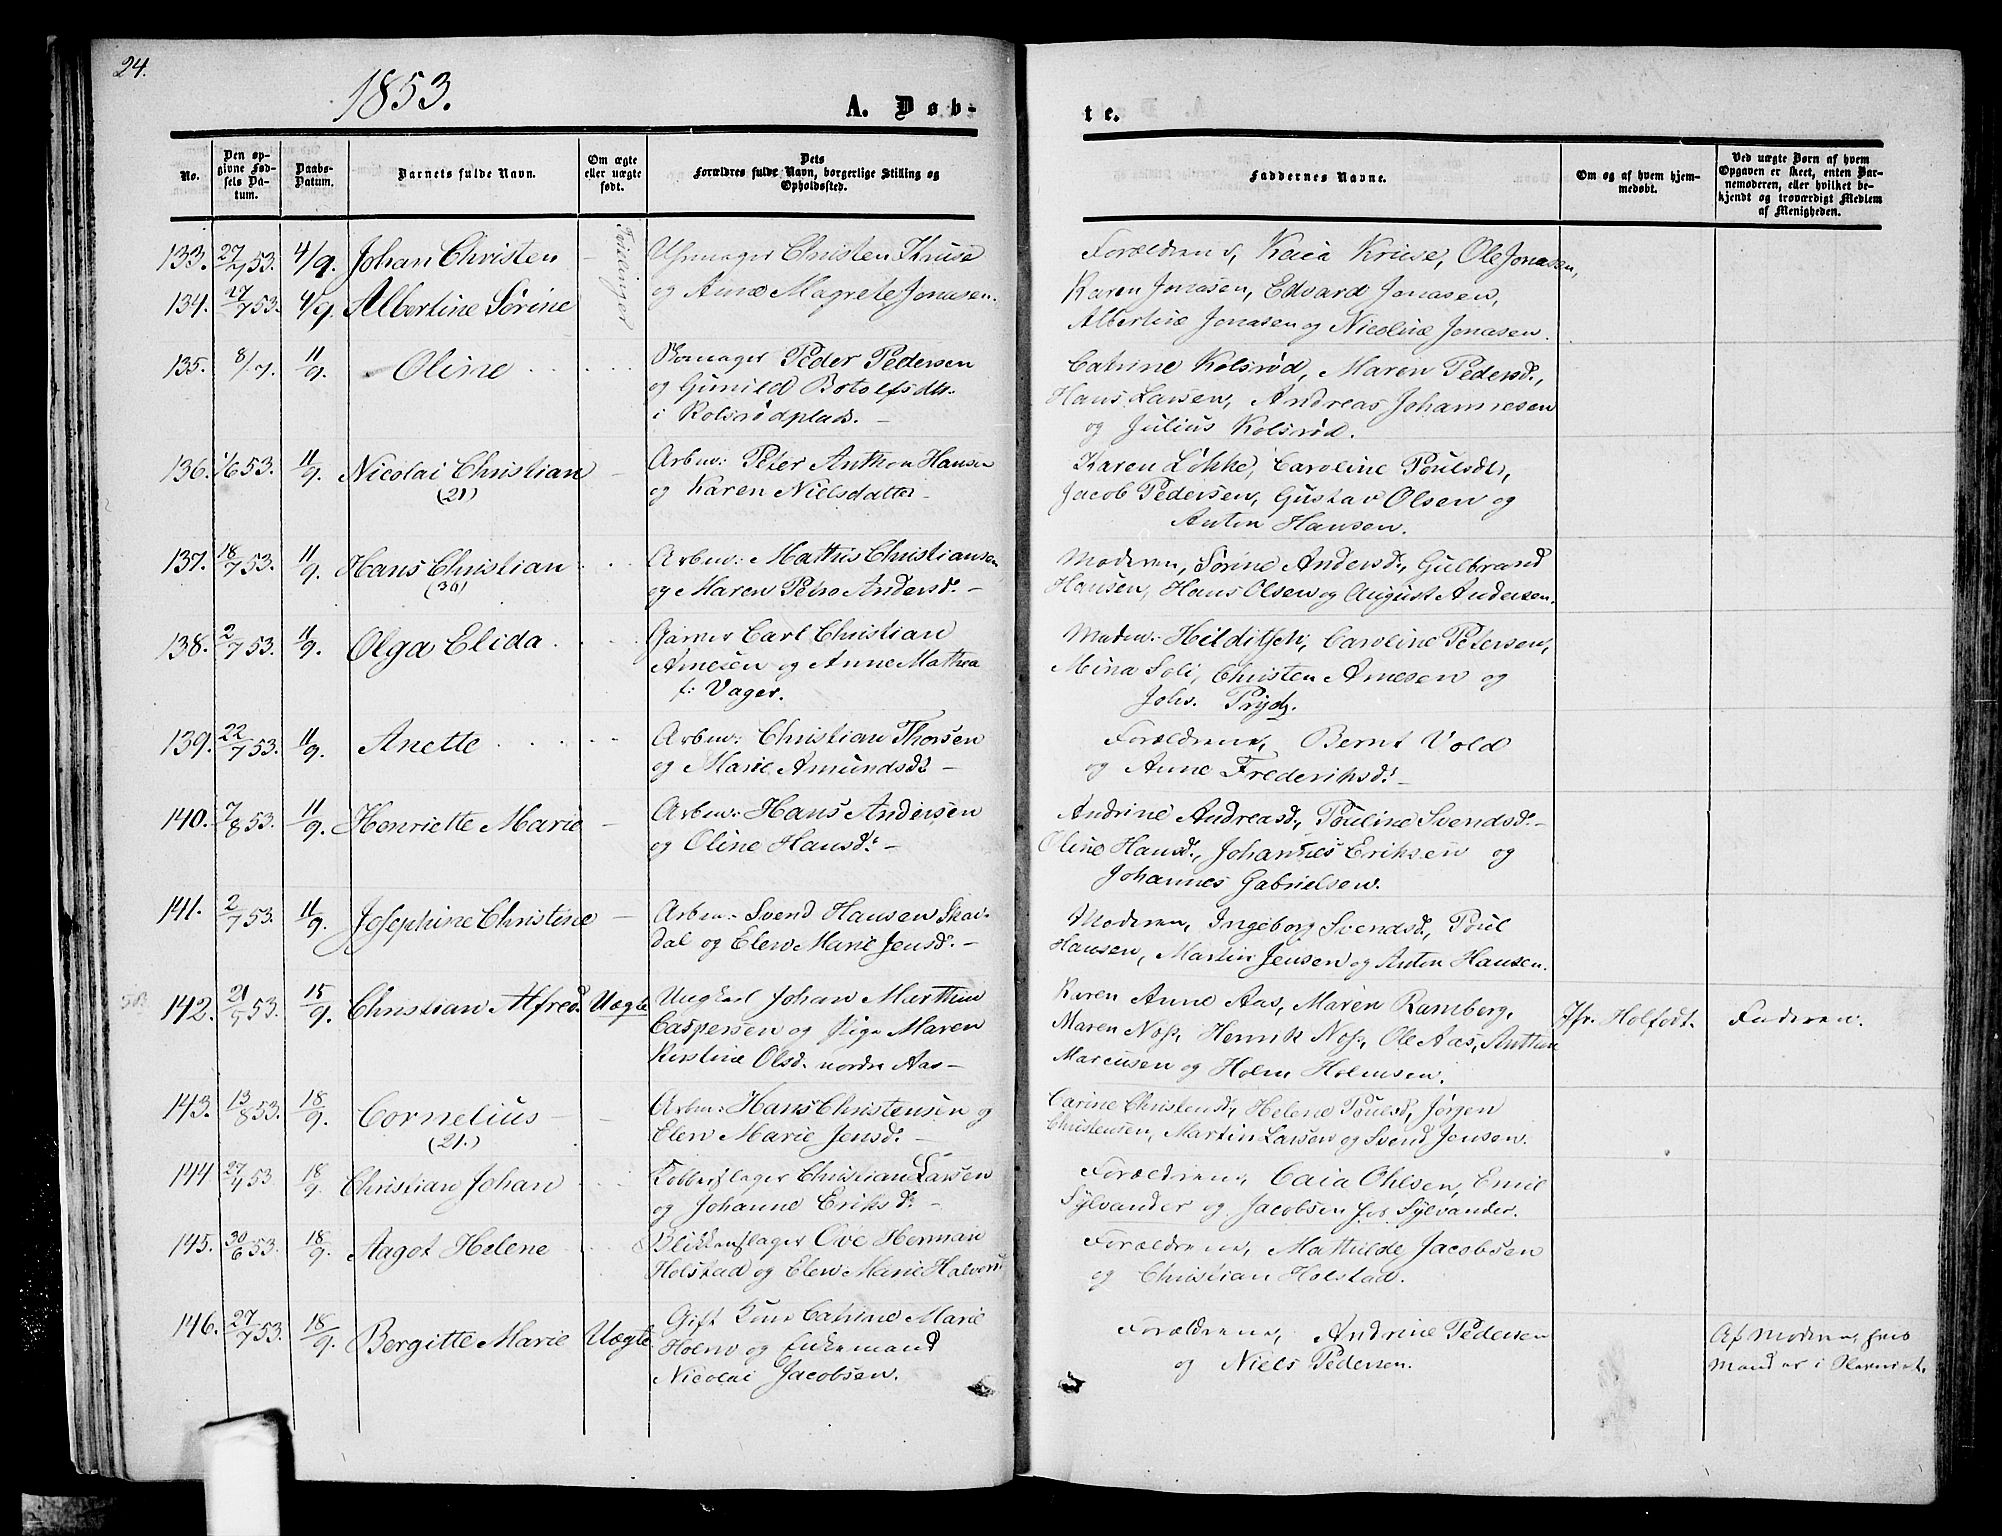 24.
1853.
A. Døb-
te.
No.
Den op-
givne Fød-
sels Da-
tum.
Daabs-
Datum.
Barnets fulde Navn.
Om ægte
eller uægte
født.
Dets
Forældres fulde Navn, borgerlige Stilling og
Opholdssted.
Faddernes Navne.
Om og af hvem hjem-
medøbt.
Ved uægte Børn af hvem
Opgaven er skeet, enten Bar-
nemoderen, eller hvilket be-
kjendt og troværdigt Medlem
af Menigheden.
133. 27/7 53. 4/9. Johan Christen — Tvillinger Uhrmager Christen Kruse
134. 27/7 53. 4/9 Albertine Sørine og Anne Magrete Jonasen.
Forældrene, Kaia Kruse, Ole Jonasen,
Karen Jonasen, Edvard Jonasen,
Albertine Jonasen og Nicoline Jonasen.
135. 8/7. 11/9. Oline Skomager Peder Pedersen
og Gunild Botolfsdtr.
i Kolsrødplads. —
Catrine Kolsrød, Maren Pedersd.,
Hans Larsen, Andreas Johannesen
og Julius Kolsrød.
136. 1/6 53. 11/9. Nicolai Christian — Arbm: Peter Anthon Hansen
(21) og Karen Nielsdatter —
Karen Løkke, Caroline Poulsdt,
Jacob Pedersen, Gustav Olsen og
Anton Hansen.
137. 18/7 53. 11/9. Hans Christian Arbm: Mathis Christiansen
(30) og Maren Petra Andersd. —
Moderen, Sørine Andersd., Gulbrand
Hansen, Hans Olsen og August Andersen.
138. 2/7 53. 11/9. Olga Elida Garver Carl Christian
Arnesen og Anne Mathea
f: Vager.
Madm: Hilditsch, Caroline Petersen,
Mina Soli, Christen Arnesen og
Johs. Prydz.
139. 22/7 53. 11/9. Anette Arbm: Christian Thorsen
og Marie Amundsd. —
Forældrene, Bernt Vold
og Anne Frederiksd. —
140. 7/8 53. 11/9. Henriette Marie — Arbm: Hans Andersen
og Oline Hansd. —
Andrine Andreasd., Pouline Svendsd. —
Oline Hansd., Johannes Eriksen og
Johannes Gabrielsen.
141. 2/7 53. 11/9. Josephine Christine — Arbm: Svend Hansen Skau-
dal og Elen Marie Jensd. —
Moderen, Ingeborg Svendsd., Poul
Hansen, Martin Jensen og Anton Hansen.
142. 21/5 53. 15/9. Christian Alfred. Uægte Ungkarl Johan Marthin
Caspersen og Pige Maren
Kirstine Olsd. nordre Aas —
Karen Anne Aas, Maren Ramberg,
Maren Noss, Henrik Noss, Ole Aas, Anthon
Marcusen og Holm Holmsen.
Jfr. Holfodt.
Faderen.
143. 13/8 53. 18/9. Cornelius — Arbm: Hans Christensen og
(21.) Elen Marie Jensd. —
Carine Christensd., Helene Poulsd., Jørgen
Christensen, Martin Larsen og Svend Jensen.
144 27/7 53 18/9. Christian Johan Kobberslager Christian Larsen
og Johanne Eriksd. —
Forældrene, Caia Ohlsen, Emil
Sylvander og Jacobsen Sylvander.
145. 30/6 53. 18/9. Aagot Helene Blikkenslager Ove Herman
Holstad og Elen Marie Halvers
Forældrene, Mathilde Jacobsen
og Christian Holstad.
146. 27/7 53. 18/9. Bergitte Marie Uægte Gift Kone Catrine Marie
Holm og Enkemand
Nicolai Jacobsen.
Forældrene, Andrine Pedersen
og Niels Pedersen.
Af Moderen, hvis
Mand er i